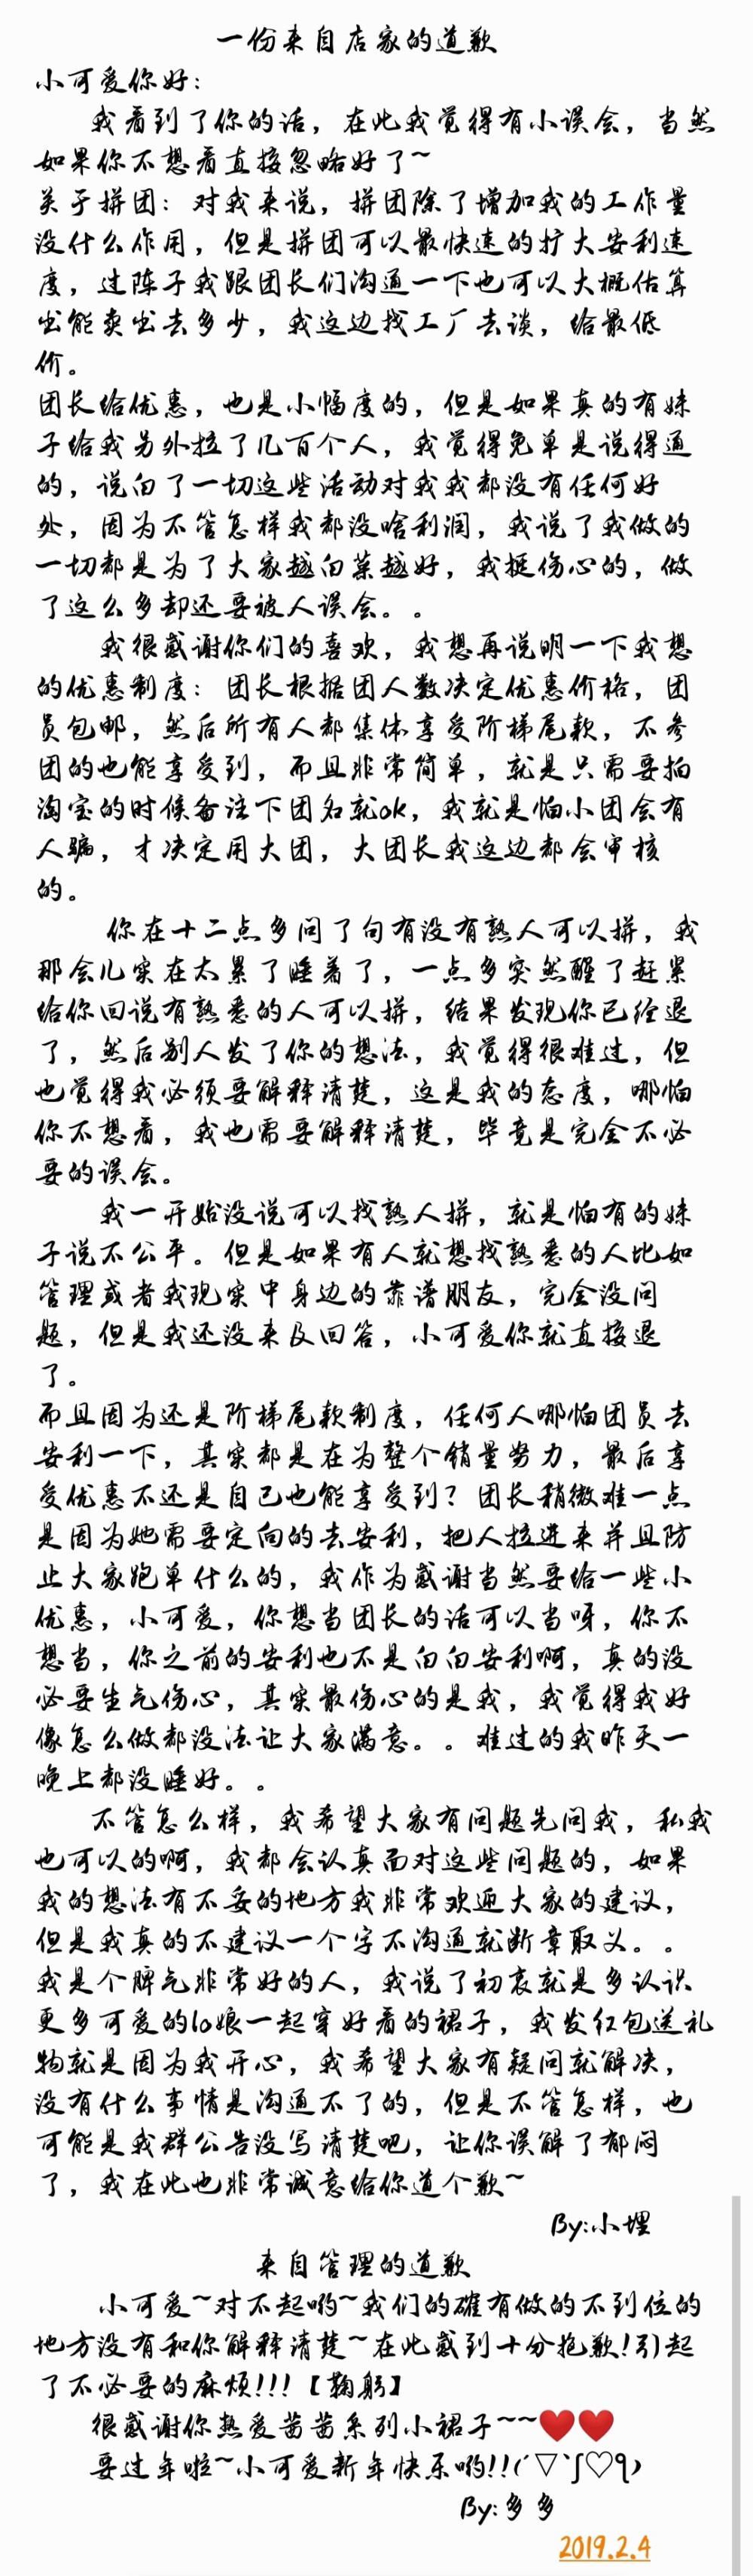 一份来自店家的道歉
小可爱你好：
我看到了你的话，在此我觉得有小误会，当然
如果你不想看直接忽略好了~
关于拼团：对我来说，拼团除了增加我的工作量
没什么作用，但是拼团可以最快速的扩大安利速
度，过阵子我跟团长们沟通一下也可以大概估算
出能卖出去多少，我这边找工厂去谈，给最低
价。
团长给优惠，也是小幅度的，但是如果真的有妹
子给我另外拉了几百个人，我觉得免单是说得通
的，说白了一切这些活动对我我都没有任何好
处，因为不管怎样我都没啥利润，我说了我做的
一切都是为了大家越白菜越好，我挺伤心的，做
了这么多却还要被人误会。。
我很感谢你们的喜欢，我想再说明一下我想
的优惠制度：团长根据团人数决定优惠价格，团
员包邮，然后所有人都集体享受阶梯尾款，不参
团的也能享受到，而且非常简单，就是只需要拍
淘宝的时候备注下团名就ok，我就是怕小团会有
人骗，才决定用大团，大团长我这边都会审核
的。
你在十二点多问了句有没有熟人可以拼，我
那会儿实在太累了睡着了，一点多突然醒了赶紧
给你回说有熟悉的人可以拼，结果发现你已经退
了，然后别人发了你的想法，我觉得很难过，但
也觉得我必须要解释清楚，这是我的态度，哪怕
你不想看，我也需要解释清楚，毕竟是完全不必
要的误会。
我一开始没说可以找熟人拼，就是怕有的妹
子说不公平。但是如果有人就想找熟悉的人比如
管理或者我现实中身边的靠谱朋友，完全没问
题，但是我还没来及回答，小可爱你就直接退
了。
而且因为还是阶梯尾款制度，任何人哪怕团员去
安利一下，其实都是在为整个销量努力，最后享
受优惠不还是自己也能享受到？团长稍微难一点
是因为她需要定向的去安利，把人拉进来并且防
止大家跑单什么的，我作为感谢当然要给一些小
优惠，小可爱，你想当团长的话可以当呀，你不
想当，你之前的安利也不是白白安利啊，真的没
必要生气伤心，其实最伤心的是我，我觉得我好
像怎么做都没法让大家满意。。难过的我昨天一
晚上都没睡好。。
不管怎么样，我希望大家有问题先问我，私我
也可以的啊，我都会认真面对这些问题的，如果
我的想法有不妥的地方我非常欢迎大家的建议，
但是我真的不建议一个字不沟通就断章取义。。
我是个脾气非常好的人，我说了初衷就是多认识
更多可爱的lo娘一起穿好看的裙子，我发红包送礼
物就是因为我开心，我希望大家有疑问就解决，
没有什么事情是沟通不了的，但是不管怎样，也
可能是我群公告没写清楚吧，让你误解了郁闷
了，我在此也非常诚意给你道个歉~
By:小埋
来自管理的道歉
小可爱~对不起哟~我们的確有做的不到位的
地方没有和你解释清楚~在此感到十分抱歉!引起
了不必要的麻烦!!!【鞠躬】
很感谢你热爱茜茜系列小裙子~~❤❤
要过年啦~小可爱新年快乐哟!!(´▽`ʃ♡ƪ)
By:多多
2019.2.4